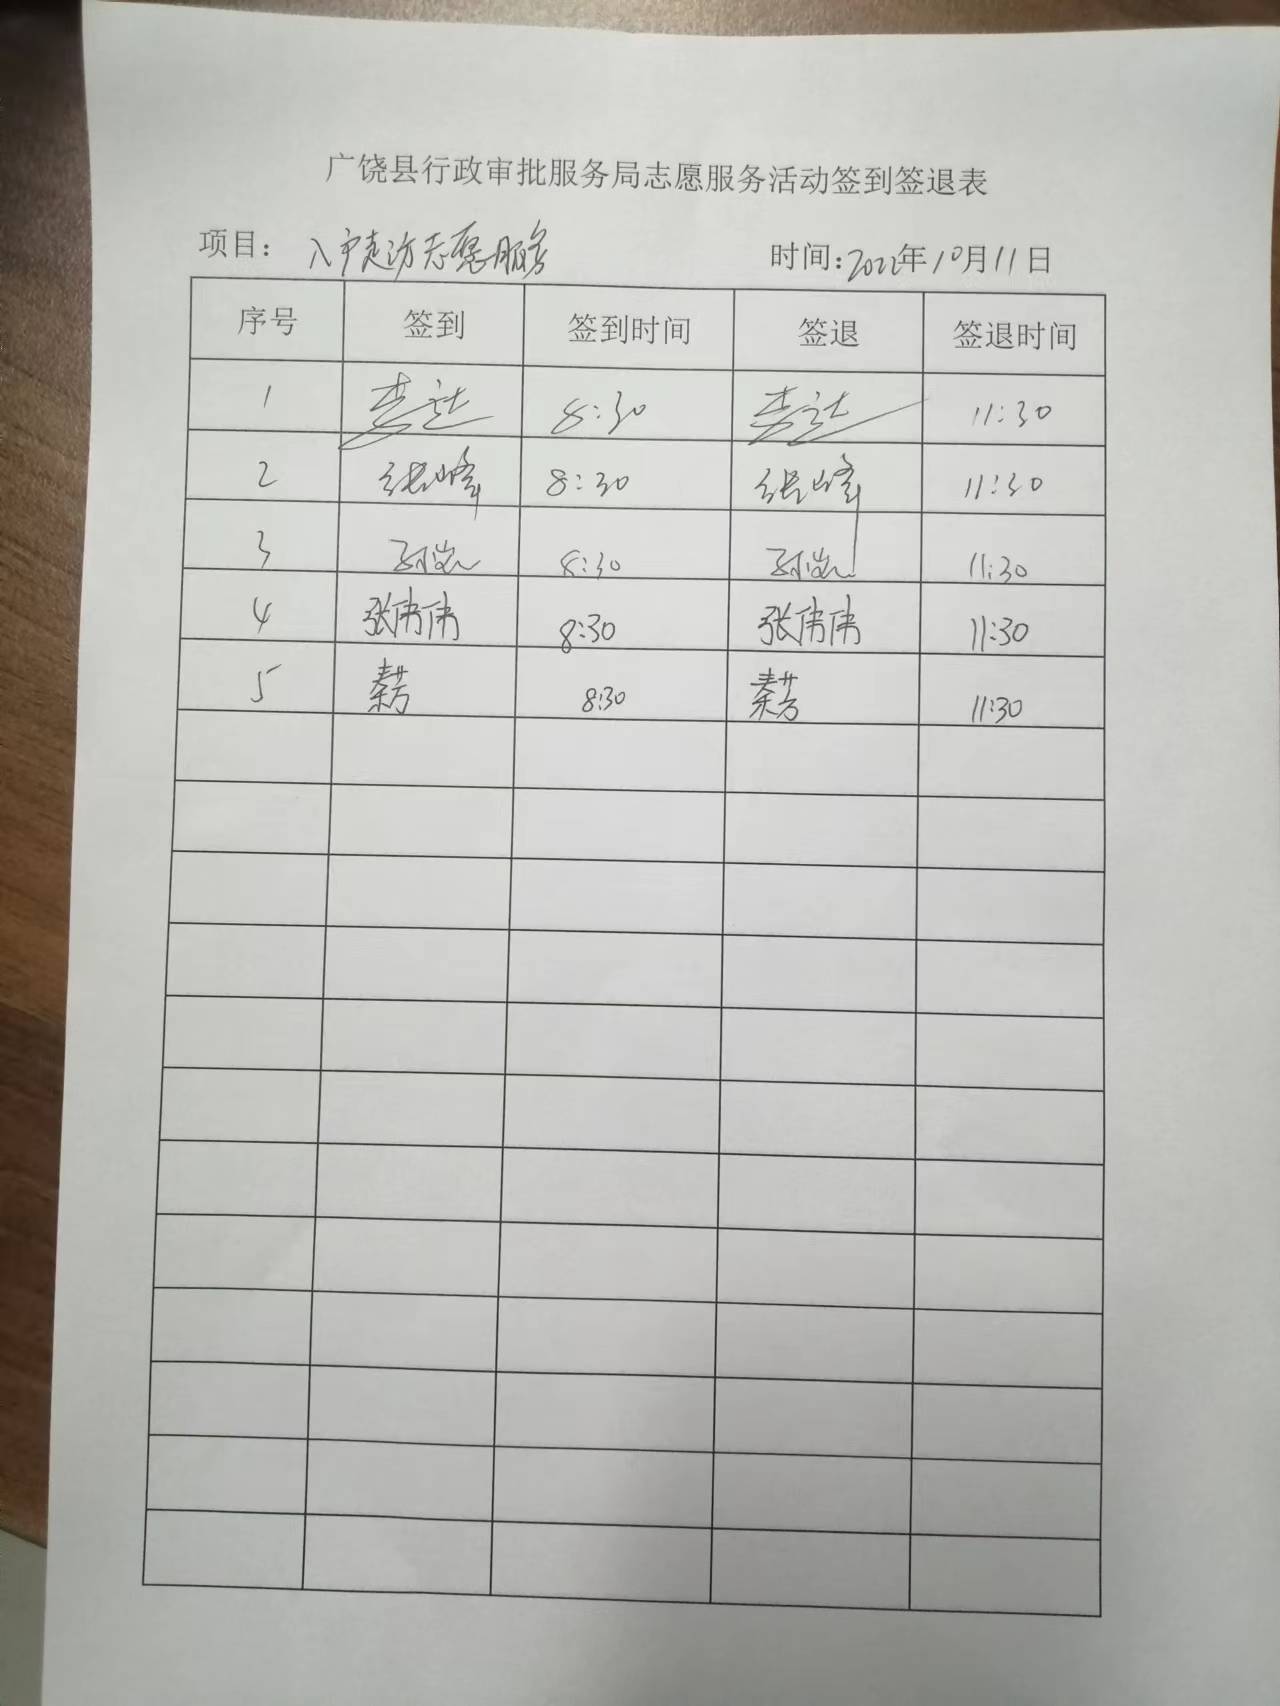 广饶县行政审批服务局志愿服务活动签到签退表
项目： 入户走访志愿服务 时间：2022年10月11日
序号 签到 签到时间 签退 签退时间
1 李达 8:30 李达 11:30
2 张峰 8:30 张峰 11:30
3 8:30 11:30
4 张伟伟 8:30 张伟伟 11:30
5 秦芳 8:30 秦芳 11:30